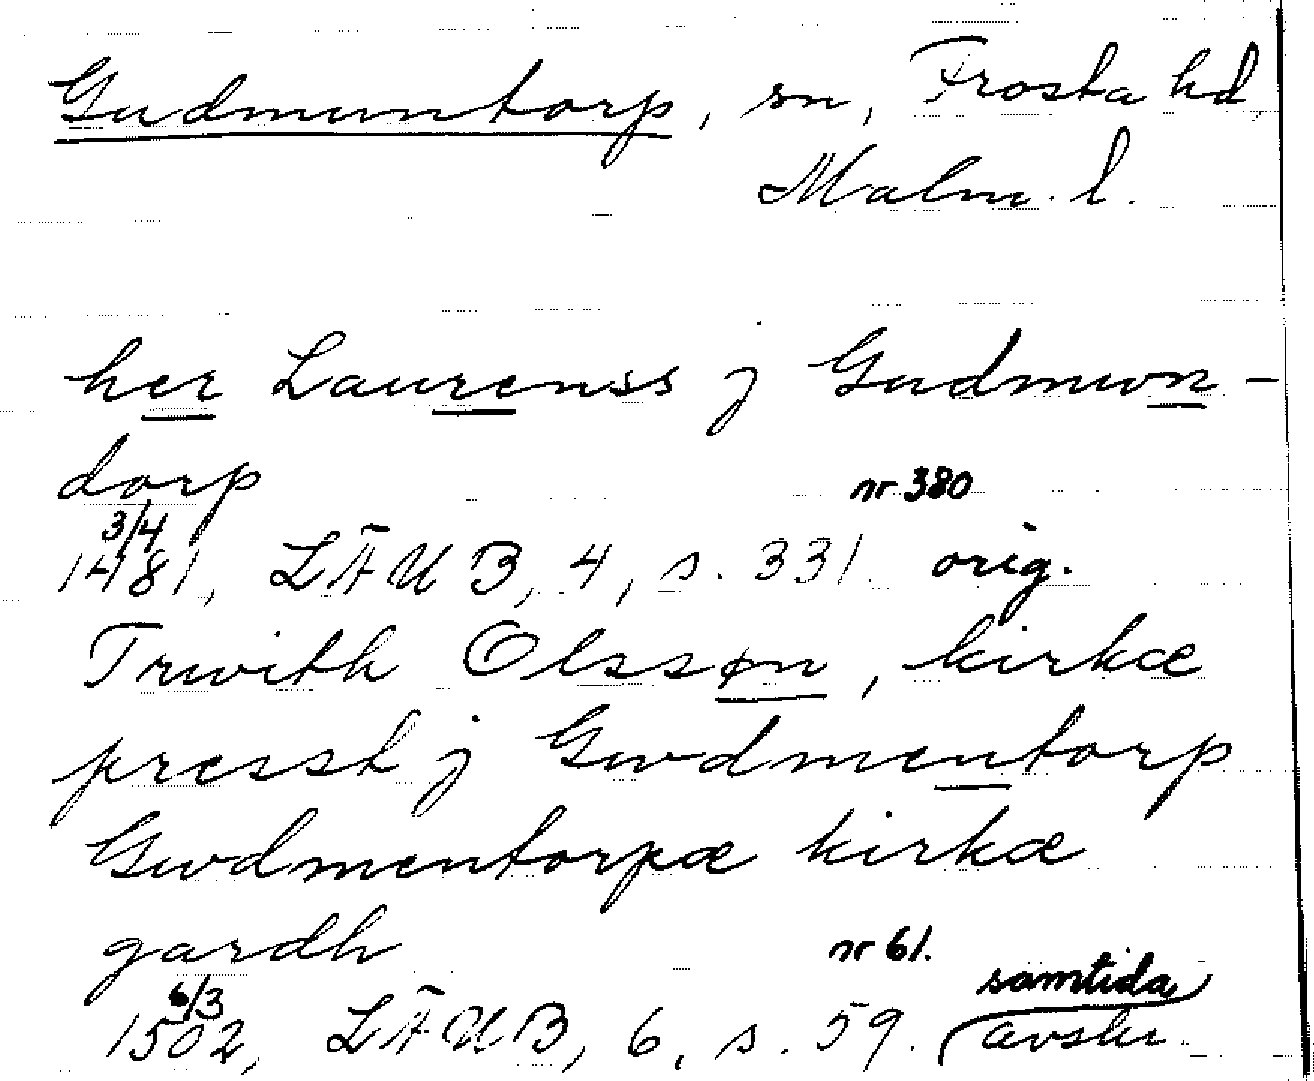 Gudmuntorp, sn, Frosta hd
Malm. l.
her Laurenss j Gudmwn-
dorp
nr 380
3/4
1481, LÄUB, 4, s. 331. orig.
Trwith Olssøn, kirkæ
pressth j Gwdmentorp
Gwdmentorpæ kirkæ
gardh
nr 61.
6/3 samtida
1502, LÄUB, 6, s. 59. avskr.